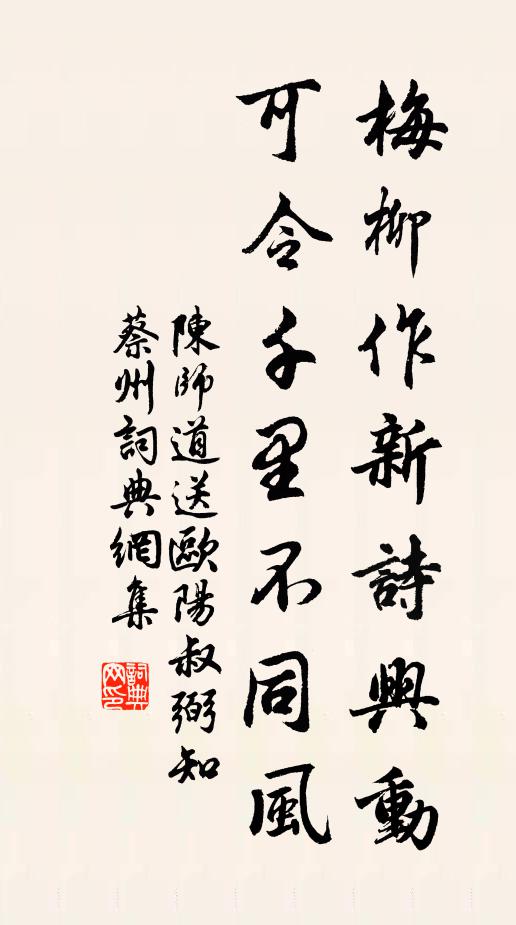 梅柳作新詩興動
可令千里不同風
陳師道送歐陽叔弼知
蔡州詞典網集
詞典
网印